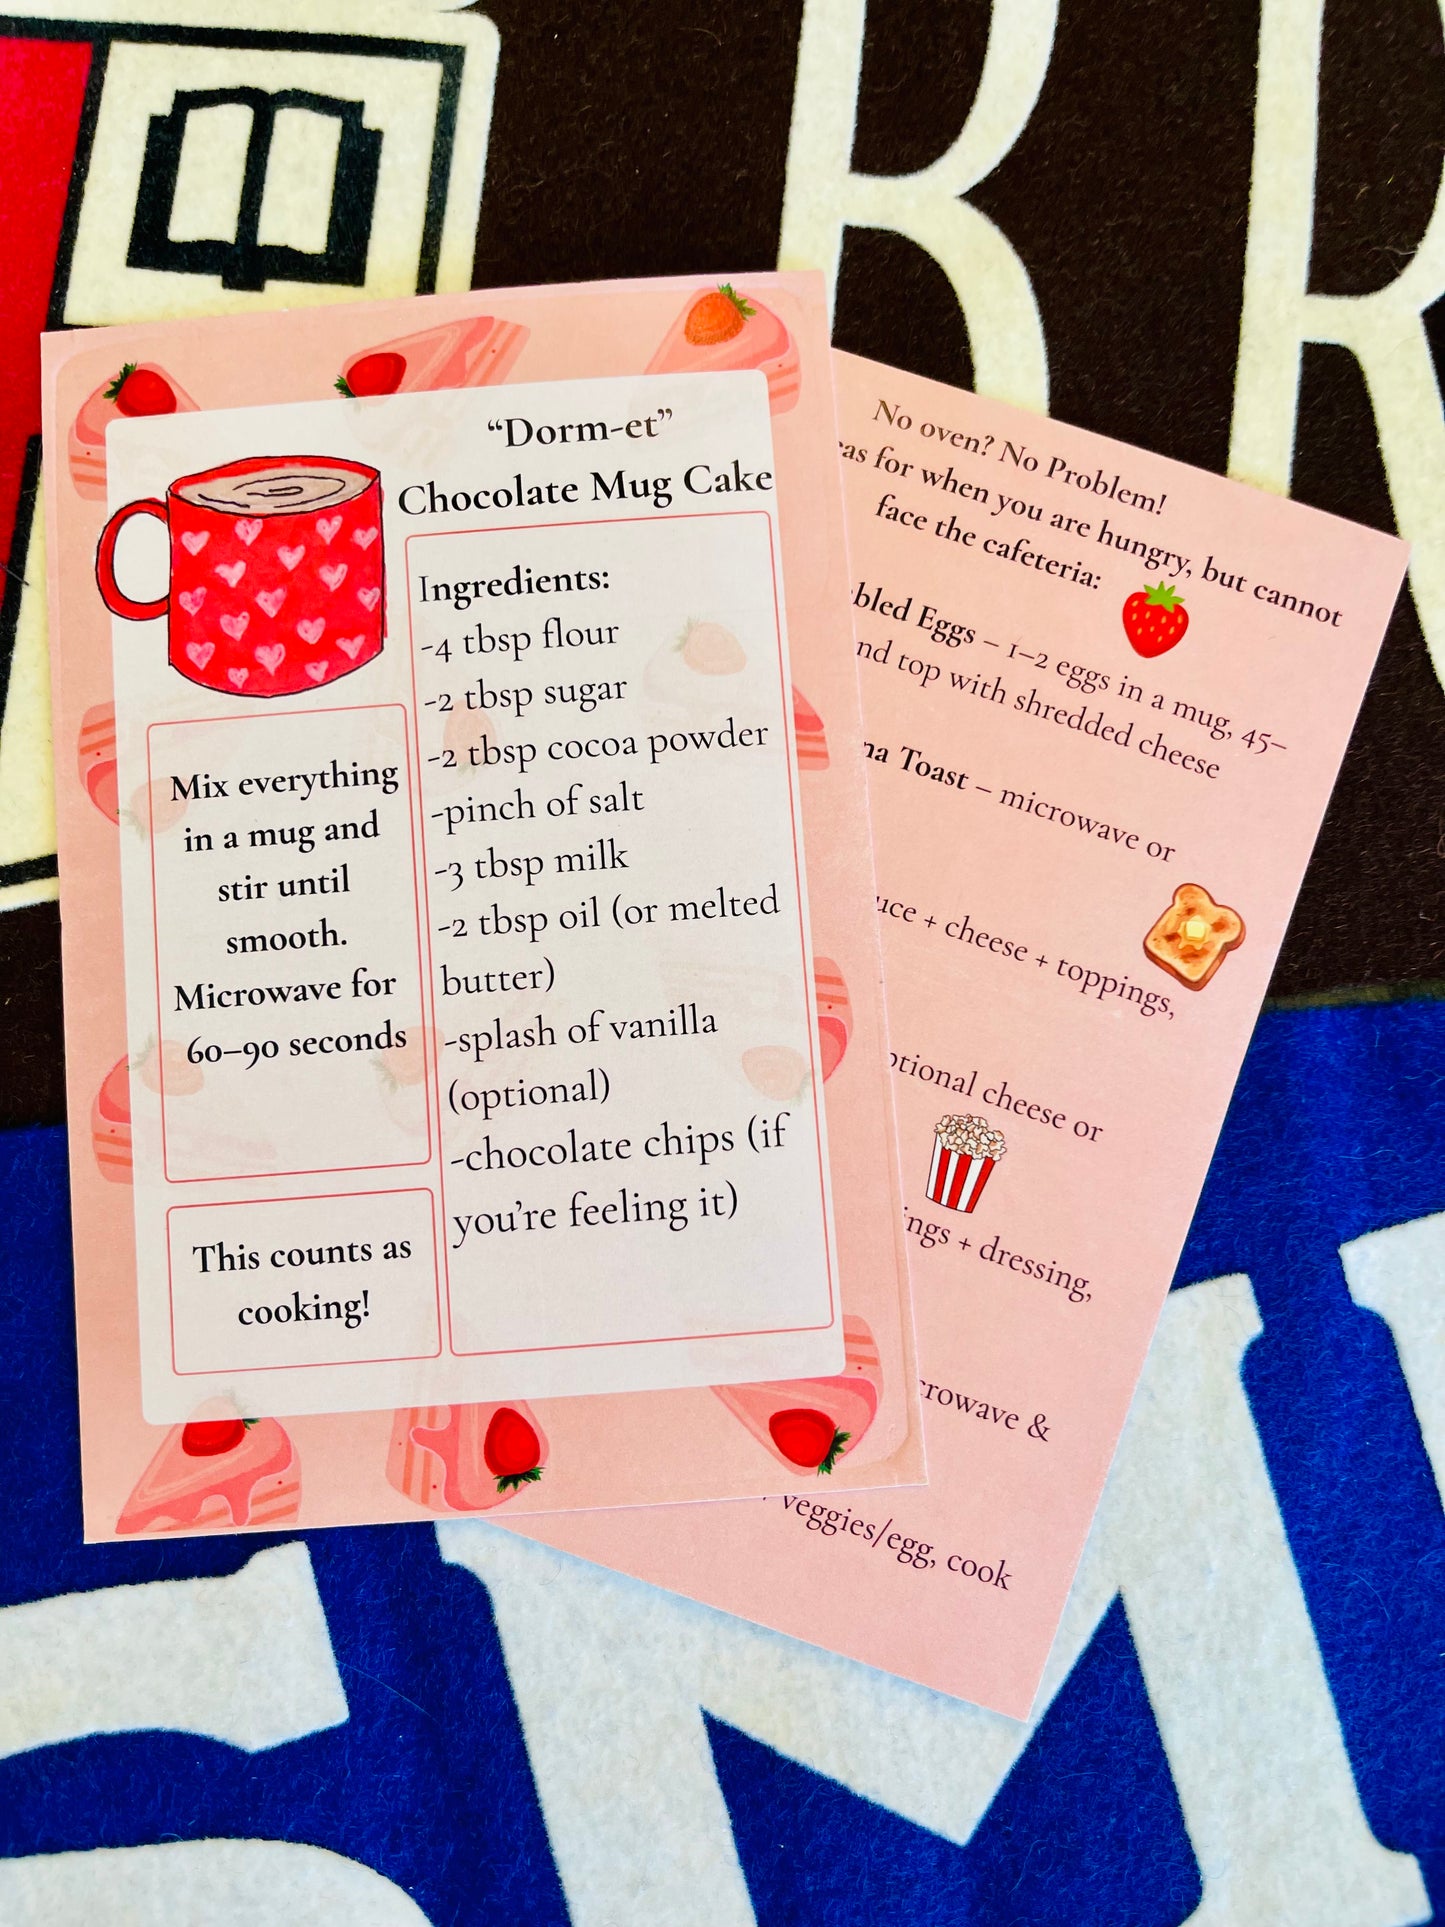 “Dorm-et”
Chocolate Mug Cake
Ingredients:
-4 tbsp flour
-2 tbsp sugar
-2 tbsp cocoa powder
-pinch of salt
-3 tbsp milk
-2 tbsp oil (or melted
butter)
-splash of vanilla
(optional)
-chocolate chips (if
you’re feeling it)
Mix everything
in a mug and
stir until
smooth.
Microwave for
60–90 seconds
This counts as
cooking!
No oven? No Problem!
for when you are hungry, but cannot
face the cafeteria:
Eggs – 1–2 eggs in a mug, 45–
top with shredded cheese
Toast – microwave or
+ cheese + toppings,
cheese or
+ dressing,
&
veggies/egg, cook